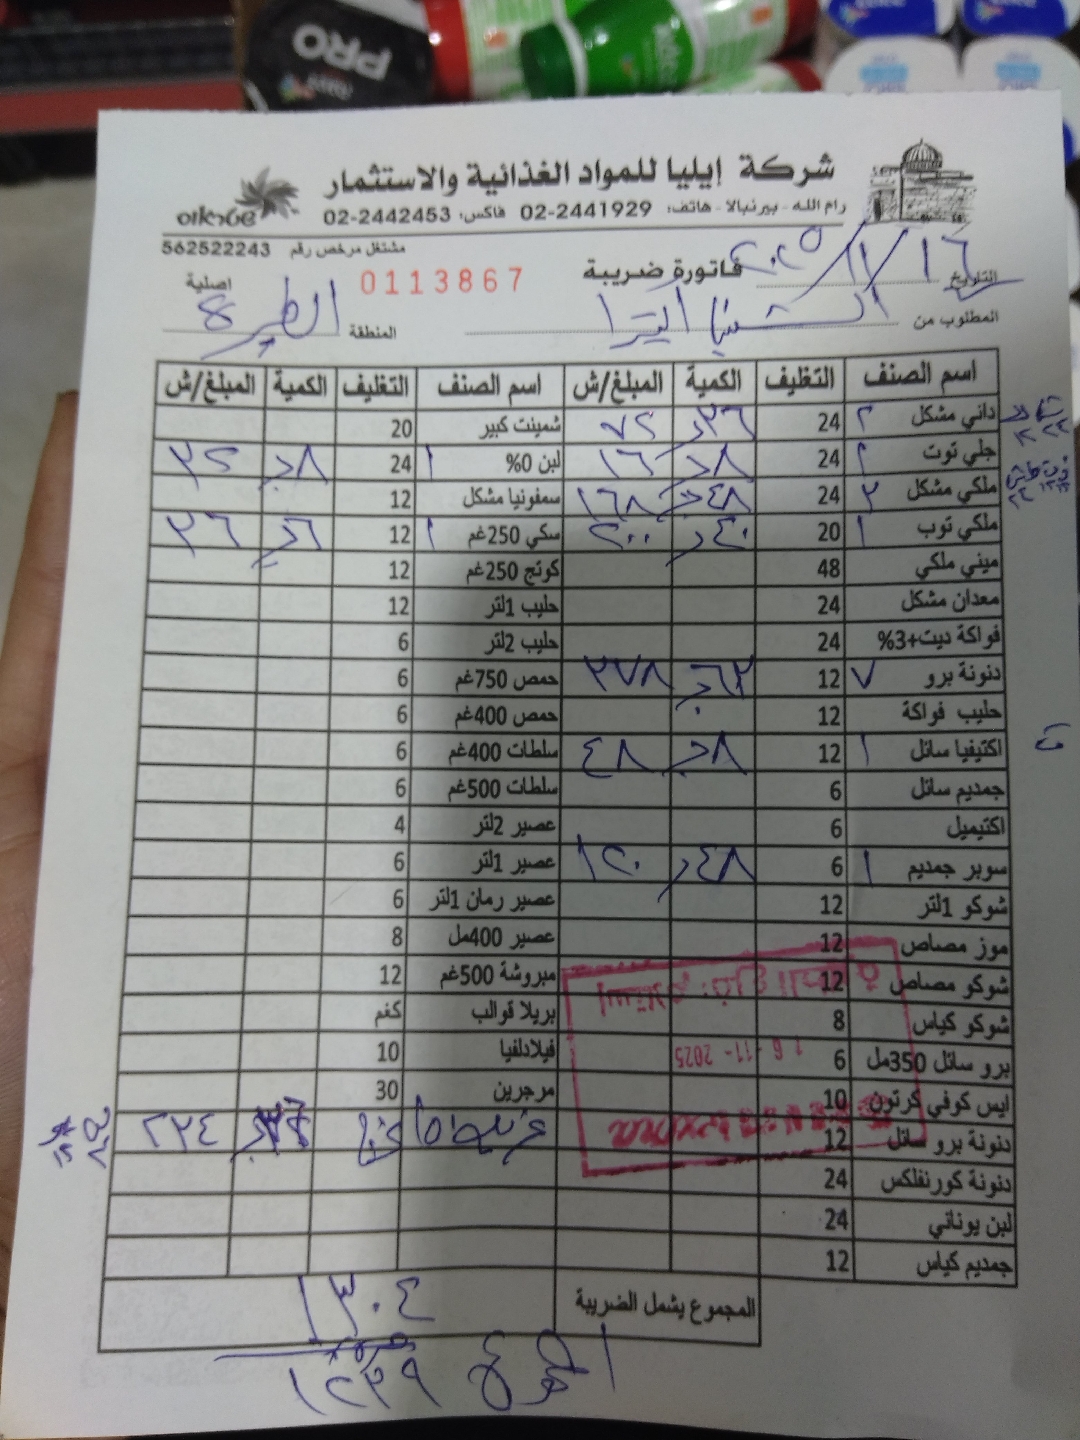 PRO
شركة إيليا للمواد الغذائية والاستثمار
رام الله - بيرنبالا - هاتف: 02-2441929 فاكس: 02-2442453
مشتغل مرخص رقم 562522243
التاريخ ١٦/١١/٢٠٢٥ فاتورة ضريبة 0113867 اصلية
المطلوب من المنطقة الطيرة
اسم الصنف التغليف الكمية المبلغ/ش اسم الصنف التغليف الكمية المبلغ/ش
داني مشكل ٢ 24 ٣٦ ٧٢ شمينت كبير 20
جلي توت ٢ 24 ٨ ١٦ لبن 0% ١ 24 ٨
ملكي مشكل 24 ٤٨ ١٦٨ سمفونيا مشكل 12
ملكي توب 20 ٤٠ ٢٠٠ سكي 250غم ١ 12 ٦ ٣٦
ميني ملكي 48 كوتج 250غم 12
معدان مشكل 24 حليب 1لتر 12
فواكة ديت+3% 24 حليب 2لتر 6
دنونة برو ٧ 12 ٦٣ ٣٧٨ حمص 750غم 6
حليب فواكة 12 حمص 400غم 6
اكتيفيا سائل ١ 12 ٨ ٤٨ سلطات 400غم 6
جمديم سائل 6 سلطات 500غم 6
اكتيميل 6 عصير 2لتر 4
سوبر جمديم ١ 6 ٤٨ ١٢٠ عصير 1لتر 6
شوكو 1لتر 12 عصير رمان 1لتر 6
موز مصاص 12 عصير 400مل 8
شوكو مصاص 12 مبروشة 500غم 12
شوكو كياس 8 بريلا قوالب كغم
برو سائل 350مل 6 فيلادلفيا 10
ايس كوفي كرتون 10 مرجرين 30
دنونة برو سائل 12 ٢٣٤
دنونة كورنفلكس 24
لبن يوناني 24
جمديم كياس 12
16-11-2025
المجموع يشمل الضريبة ١٣٠٤